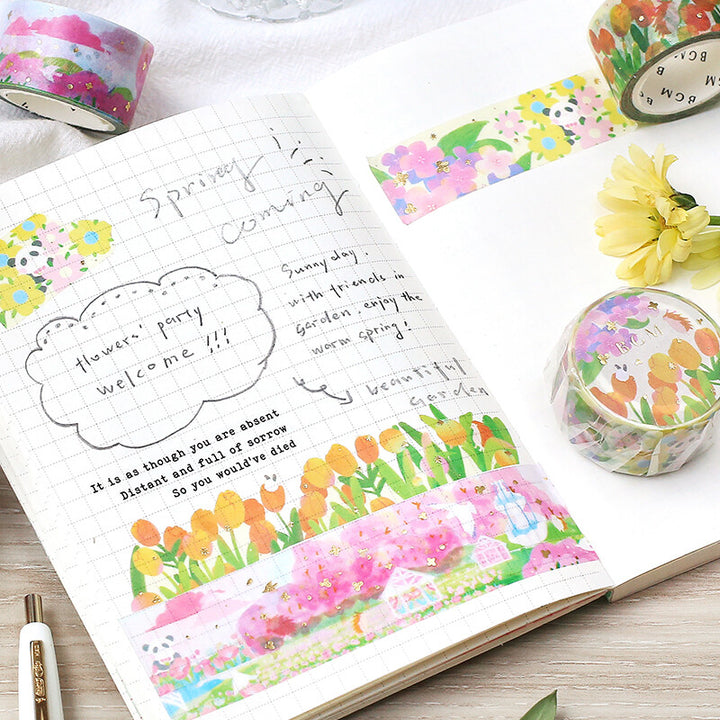 Spring
coming
flowers' party
welcome!!!
Sunny day.
with friends in
garden, enjoy the
warm spring!
beautiful
garden
It is as though you are absent
Distant and full of sorrow
So you would've died
BGM B
BGM